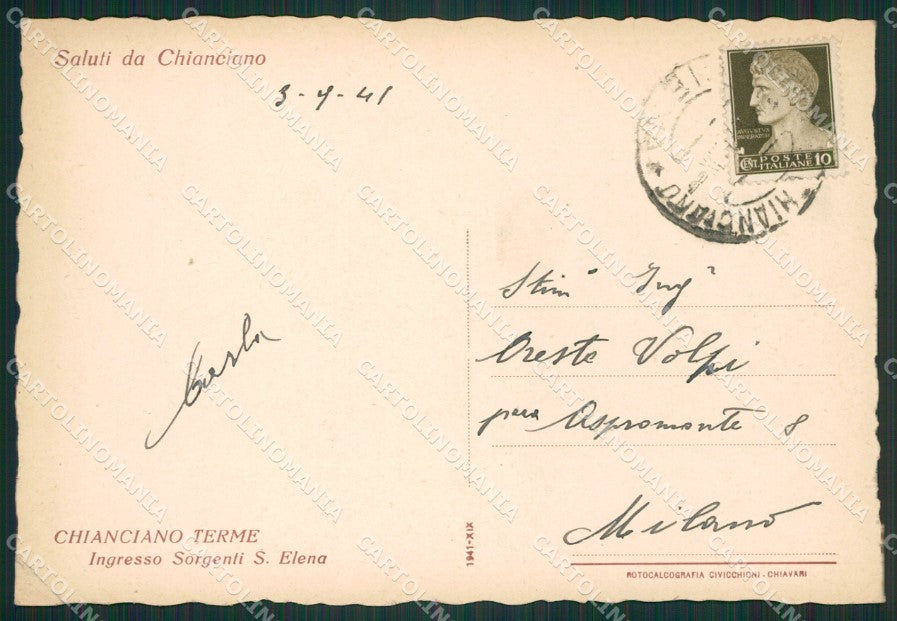 Saluti da Chianciano
3-9-41
AUGUSTVS
IMPERATOR
CENT. POSTE ITALIANE 10
CHIANCIANO
Stim° Ing°
Oreste Volpi
piazza Aspromonte 8
Milano
Carla
CHIANCIANO TERME
Ingresso Sorgenti S. Elena
1941-XIX
ROTOCALCOGRAFIA CIVICCHIONI - CHIAVARI
CARTOLINOMANIA